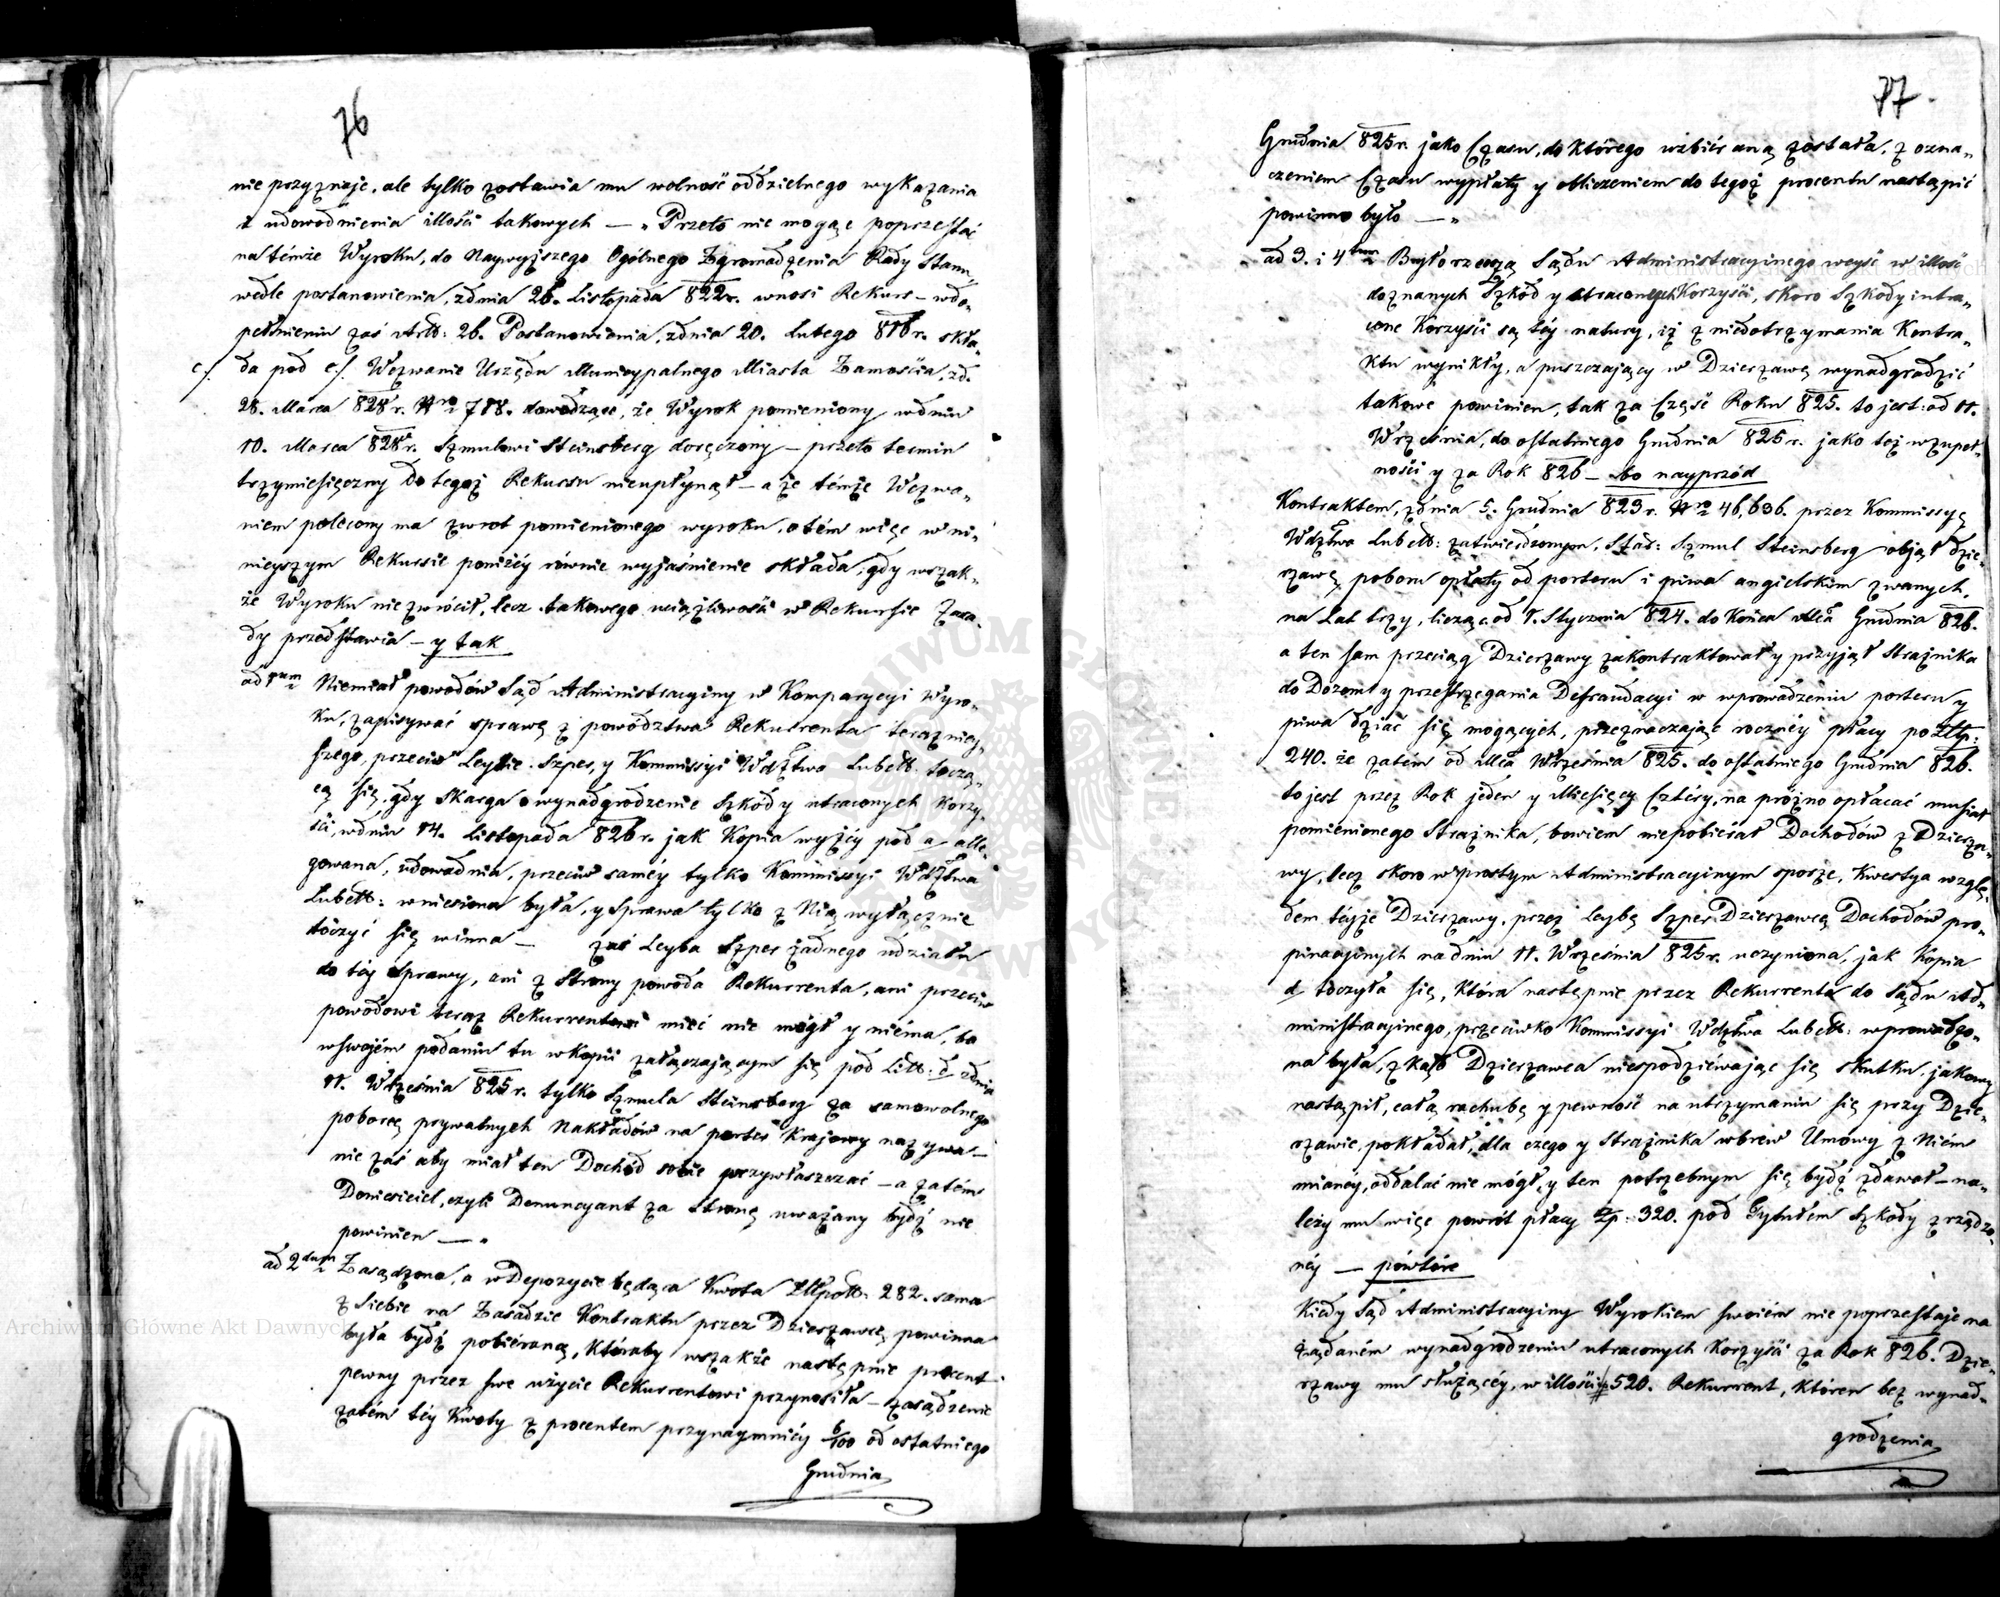 76
nie przyznaje, ale tylko zostawia mu wolność oddzielnego wykazania
i udowodnienia illości takowych — „ Przeto nie mogąc poprzestać
na témże Wyroku, do Naywyższego Ogólnego Zgromadzenia Rady Stanu
wedle postanowienia, zdnia 26. Listopada 822r. wnosi Rekurs — wdo„
pełnieniu zaś Artt: 26. Postanowienia, zdnia 20. Lutego 816r. skła„
c/. da pod c/. Wezwanie Urzędu Municypalnego Miasta Zamościa, zd.
28. Marca 828r. Nro 788. dowodzące, że Wyrok pomieniony wdniu
10. Marca 828r. Szmulowi Steinsberg doręczony — przeto termin
trzymiesięczny do tegoż Rekursu nieupłynął — a że témże Wezwa„
niem polecony ma zwrot pomienionego wyroku, otém więc w ni„
nieyszym Rekursie poniżéy równie wyjaśnienie składa, gdy wszak„
że Wyroku nie zwrócił, lecz takowego uciążliwości w Rekursie Zasa„
dy przedstawia — y tak
ad 1mum Niemiał powodów Sąd Administracyiny w Komparycyi Wyro„
ku, zapisywać sprawę z powództwa Rekurrenta terazniey„
szego, przeciw Leybie Szper, y Kommissyi Wdztwa Lubell: toczą„
cą się, gdy Skarga o wynadgrodzenie Szkód y utraconych Korzy„
ści, wdniu 14. Listopada 826r. jak Kopia wyżéy pod a alle„
gowana, udowadnia, przeciw saméy tylko Kommissyi Wdztwa
Lubell: wniesiona była, y Sprawa tylko z Nią wyłącznie
toczyć się winna — zaś Leyba Szper żadnego udziału
do téy Sprawy, ani z Strony powoda Rekurrenta, ani przeciw
powodowi teraz Rekurrentowi mieć nie mógł y niéma, bo
wswojém podaniu tu wkopii załączającym się pod Litt: d zdnia
11. Września 825r. tylko Szmula Steinsberg za samowolnego
poborcę prywatnych Nakładów na porter Krajowy nazywa —
nie zaś aby miał ten Dochód sobie przywłaszczać — a zatém
Doniesiciel, czyli Denuncyant za Stronę uważany bydź nie
powinien — „
ad 2dum Zasądzona, a w Depozycie będąca Kwota Złpoll: 282. sama
z siebie na Zasadzie Kontraktu przez Dzierzawcę powinna
była bydź pobiéraną, Któraby wszakże następnie procent
pewny przez swe użycie Rekurrentowi przynosiła — zasądzenie
zatém téy Kwoty z procentem przynaymniéy 6/100 od ostatniego
Grudnia
77.
Grudnia 825r. jako Czasu, do którego wzbiéraną została, z ozna„
czeniem Czasu wypłaty y obliczeniem do tegoż procentu nastąpić
powinno było — „
ad 3. i 4tum Było rzeczą Sądu Administracyinego weyść w illość
doznanych Szkód y utraconych Korzyści, skoro Szkody i utra„
cone Korzyści są téy natury, iż z niedotrzymania Kontra„
ktu wynikły, a puszczający w Dzierzawę wynadgrodzić
takowe powinien, tak za Część Roku 825. to jest: od 11.
Września, do ostatniego Grudnia 825r. jako też wzupeł„
ności y za Rok 826 — bo nayprzód
Kontraktem, zdnia 5. Grudnia 823r. Nro 46,636. przez Kommissyą
Wdztwa Lubell: zatwierdzonym, Star: Szmul Steinsberg objął dzie„
rzawę poboru opłaty od porteru i piwa angielskim zwanych,
na Lat trzy, licząc od 1. Stycznia 824. do Końca Mca Grudnia 826.
a ten sam przeciąg Dzierzawy zakontraktował y przyjął Strażnika
do Dozoru y przestrzegania Defraudacyi w wprowadzeniu porteru y
piwa dziać się mogących, przeznaczając rocznéy płacy po Złp:
240. że zatém od Mca Września 825. do ostatniego Grudnia 826.
to jest przez Rok jeden y Miesięcy Cztéry, na próżno opłacać musiał
pomienionego Strażnika, bowiem niepobiérał Dochodów z Dzierza„
wy, lecz skoro w prostym Administracyinym sporze, Kwestya wzglę„
dem téyże Dzierzawy, przez Leybę Szper Dzierzawcę Dochodów pro„
pinacyinych na dniu 11. Września 825r. uczyniona, jak Kopia
d toczyła się, Która następnie przez Rekurrenta do Sądu Ad„
ministracyinego, przeciwko Kommissyi Wdztwa Lubell: wprowadzo„
na była, z kąd Dzierzawca niespodziéwając się skutku, jakowy
nastąpił, całą rachubę y pewność na utrzymaniu się przy Dzie„
rzawie, pokładał, dla czego y Strażnika wbrew Umowy z Niém
mianéy, oddalać nie mógł, y ten potrzebnym się bydź zdawał — na„
leży mu więc powrót płacy Złp: 320. pod Tytułem Szkody zrządzo„
néy — powtóre
Kiedy Sąd Administracyiny Wyrokiem swoiém nie poprzestaje na
żądaném wynadgrodzeniu utraconych Korzyści za Rok 826. Dzie„
rzawy mu służącéy, w illości 520. Rekurrent, Któren bez wynad„
grodzenia
Archiwum Główne Akt Dawnych